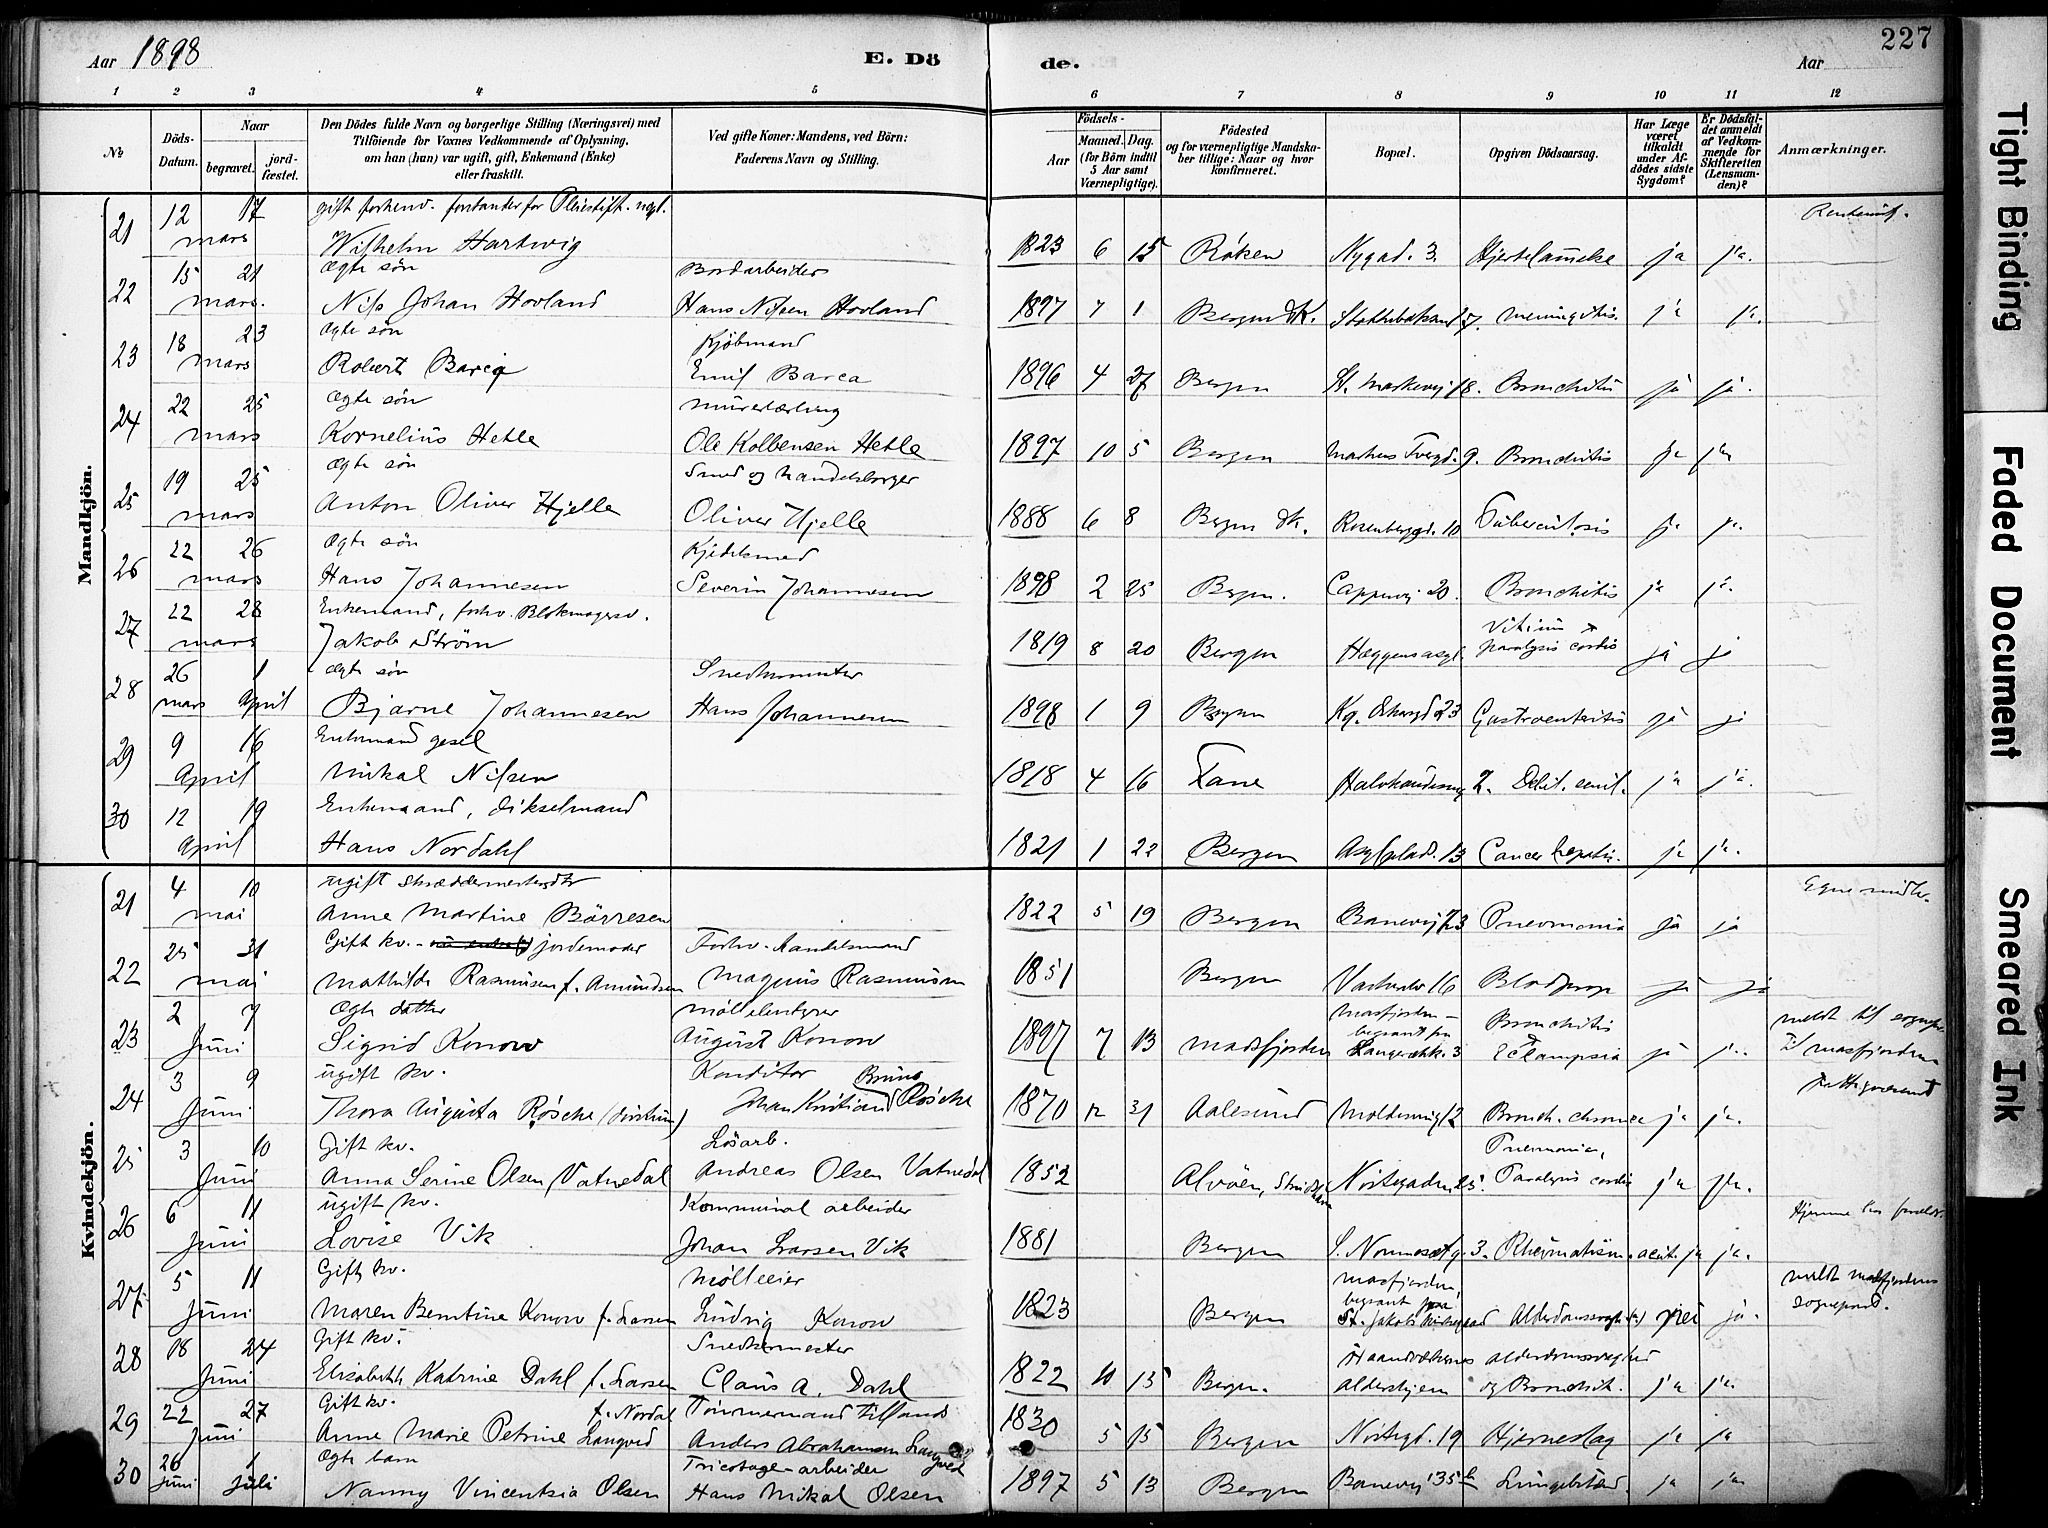 Aar 1898 E. Dö de. Aar 227
1 2 3 4 5 6 7 8 9 10 11 12
No Döds-Datum. Naar begravet. jordfæstet. Den Dödes fulde Navn og borgerlige Stilling (Næringsvei) med Tilföiende for Voxnes Vedkommende af Oplysning, om han (hun) var ugift, gift, Enkemand (Enke) eller fraskilt. Ved gifte Koner: Mandens, ved Börn: Faderens Navn og Stilling. Aar Födsels- Maaned. Dag. (for Börn indtil 5 Aar samt Værnepligtige). Födested og for værnepligtige Mandskaber tillige: Naar og hvor konfirmeret. Bopæl. Opgiven Dödsaarsag. Har Læge været tilkaldt under Afdödes sidste Sygdom? Er Dödsfaldet anmeldt af Vedkommende for Skifteretten (Lensmanden)? Anmærkninger.
Mandkjön.
21 12 17 gift forhenv. forstander for Pleiestift.
mars Wilhelm Hartwig 1823 6 15 Røken Nygad. 3. Hjertelammelse ja ja.
22 15 21 Ægte søn Bordarbeider
mars. Nils Johan Hovland Hans Nilsen Hovland 1897 7 1 Bergen Dk. 7. meningitis. ja ja.
23 18 23 Ægte søn Kjöbmand
mars Robert Barca Emil Barca 1896 4 27 Bergen St. Markevej 18. Bronchitis ja ja.
24 22 25 Ægte søn murerlærling
mars Kornelius Hetle Ole Kolbensen Hetle 1897 10 5 Bergen Markus Tvergd. 9. Bronchitis ja ja
25 19 25 Ægte søn Smed og handelsborger
mars Anton Oliver Hjelle Oliver Hjelle 1888 6 8 Bergen Dk. Rosenberggd. 10 Tuberculosis ja ja.
26 22 26 Ægte søn Kjedelsmed
mars Hans Johannesen Severin Johannesen 1898 2 25 Bergen. Cappevej 20. Bronchitis ja ja.
27 22 28 Enkemand, forhv. Blokmagersv.
mars Jakob Strøm 1819 8 20 Bergen Hæggens asyl. Vitium & paralysis cordis ja ja
28 26 1 ægte søn Snedkermester
mars April Bjarne Johannesen Hans Johannesen 1898 1 9 Bergen Kg. Oskargd 23 Gastroenteritis ja ja
29 9 16 Enkemand
April Mikal Nilsen 1818 4 16 Fane 2. Debil. senil. ja ja.
30 12 19 Enkemand, Dikselmand
April Hans Nordahl 1821 1 22 Bergen Asylplads. 13 Cancer hepatis. ja ja.
Kvindekjön.
21 4 10 ugift Egne midler.
mai Anne Martine Börresen 1822 5 19 Bergen Banevej 23 Pneumonia ja ja
22 25 31 Gift kv. - jordemoder Forhv. Handelsmand
mai Mathilde Rasmusen f. Amundsen Magnus Rasmusen 1851 Bergen 16 ja ja
23 2 7 Ægte datter masfjorden - begravet fra Bronchitis meldt til sognepr.
Juni Sigrid Konow August Konow 1897 7 13 Masfjorden 3 & Eclampsia ja ja. til masfjorden
24 3 9 ugift kv. Konditor Bruno
Juni Thora Augusta Røscke Johan Kristian Røscke 1870 12 31 Aalesund 12 Bronch. chronica ja ja.
25 3 10 Gift kv. Lösarb. Pneumonia,
Juni Anna Serine Olsen Vatnedal Andreas Olsen Vatnedal 1852 Alvöen, Nöstegaden 25. Paralysis cordis ja ja.
26 6 11 ugift kv. Kommunal arbeider Hjemme hos
Juni Lovise Vik Johan Larsen Vik 1881 Bergen 3. Rheumatism. acut. ja ja.
27 5 11 Gift kv. Mölleeier masfjorden, begravet fra meldt masfjordens
Juni Maren Berntine Konow f. Larsen Ludvig Konow 1823 Bergen St. Jakobs nei ja. sognepræst.
28 18 24 Gift kv. Snedkermester Haandværkernes alderdomssvaghed
Juni Elisabeth Katrine Dahl f. Larsen Claus A. Dahl 1822 10 15 Bergen. aldershjem og Bronchit. ja ja.
29 22 27 Gift kv. f. Nordal
Juni Anne Marie Petrine Langved Anders Abrahamsen Langved 1830 5 15 Bergen Nöstegd. 19 Hjerneslag ja ja
30 26 1 Ægte barn Tricotage-arbeider
Juni Juli Nanny Vincentsia Olsen Hans Mikal Olsen 1897 5 13 Bergen Banevej 35 b ja ja
Tight Binding
Faded Document
Smeared Ink